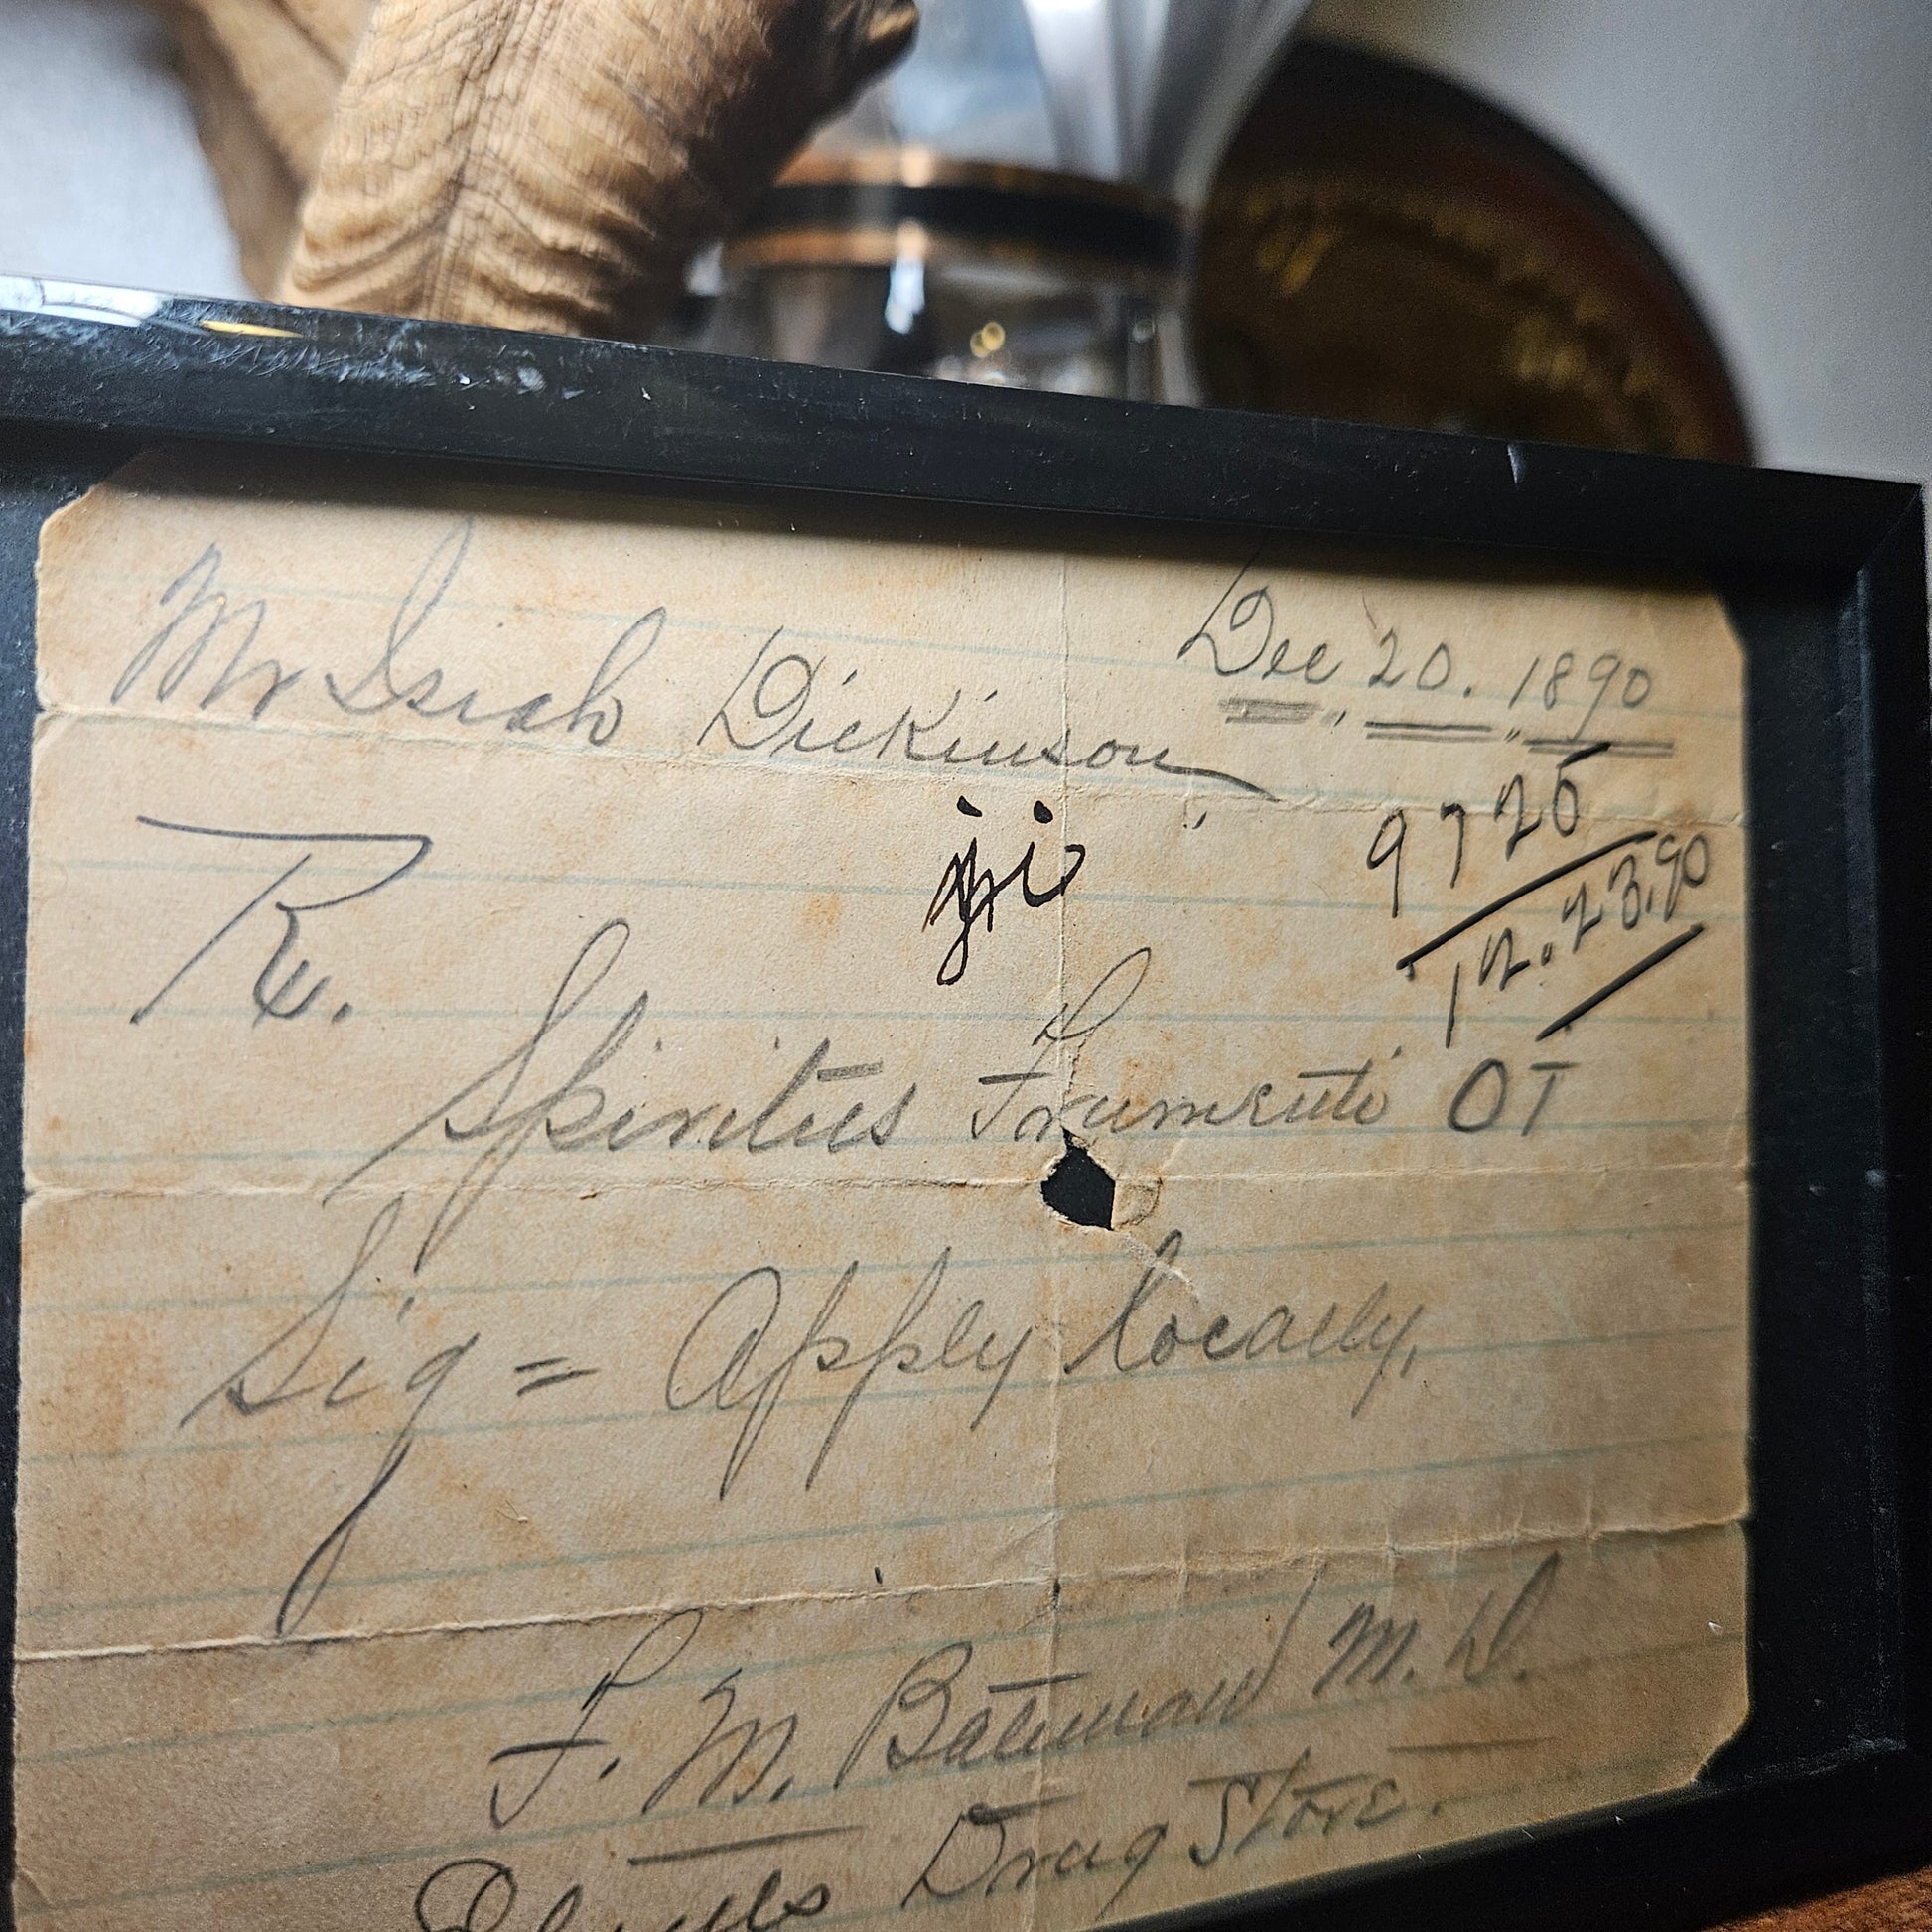 Mr Isiah Dickinson
Dec 20. 1890
9725
12.23.90
Rx.
Spiritus Frumenti OT
Sig = Apply locally,
F. M. Bateman M.D.
Drug Store.